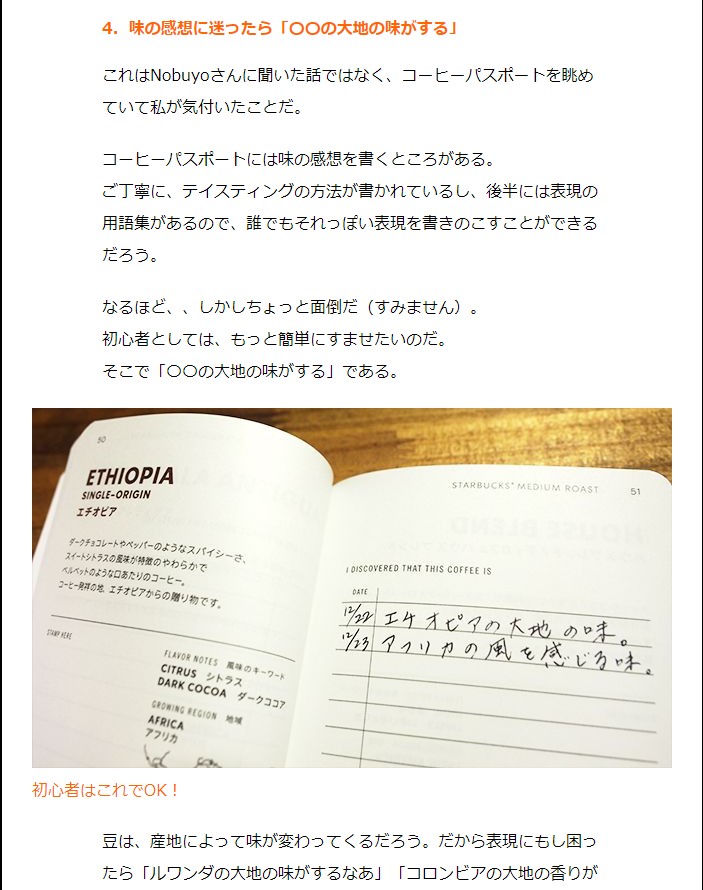 4．味の感想に迷ったら「〇〇の大地の味がする」
これはNobuyoさんに聞いた話ではなく、コーヒーパスポートを眺め
ていて私が気付いたことだ。
コーヒーパスポートには味の感想を書くところがある。
ご丁寧に、テイスティングの方法が書かれているし、後半には表現の
用語集があるので、誰でもそれっぽい表現を書きのこすことができる
だろう。
なるほど、、しかしちょっと面倒だ（すみません）。
初心者としては、もっと簡単にすませたいのだ。
そこで「〇〇の大地の味がする」である。
50
ETHIOPIA
SINGLE-ORIGIN
エチオピア
ダークチョコレートやペッパーのようなスパイシーさ、
スイートシトラスの風味が特徴のやわらかで
ベルベットのような口あたりのコーヒー。
コーヒー発祥の地、エチオピアからの贈り物です。
STAMP HERE
FLAVOR NOTES 風味のキーワード
CITRUS シトラス
DARK COCOA ダークココア
GROWING REGION 地域
AFRICA
アフリカ
STARBUCKS® MEDIUM ROAST
51
I DISCOVERED THAT THIS COFFEE IS
DATE
12/22 エチオピアの大地の味。
12/23 アフリカの風を感じる味。
初心者はこれでOK！
豆は、産地によって味が変わってくるだろう。だから表現にもし困っ
たら「ルワンダの大地の味がするなあ」「コロンビアの大地の香りが